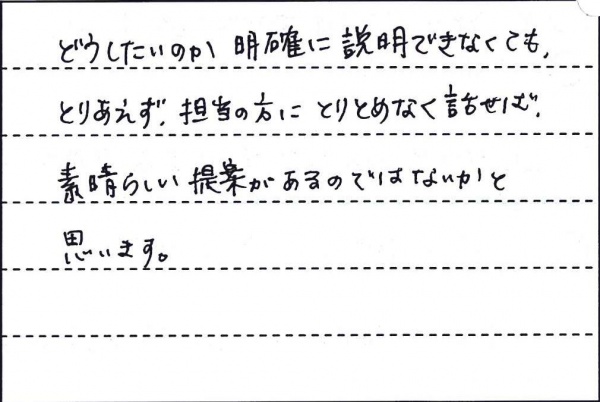 どうしたいのか 明確に説明できなくても、
とりあえず、担当の方に とりとめなく話せば、
素晴らしい提案があるのではないかと
思います。